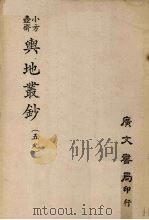 小方
壺齋
輿地叢鈔
廣文書局印行